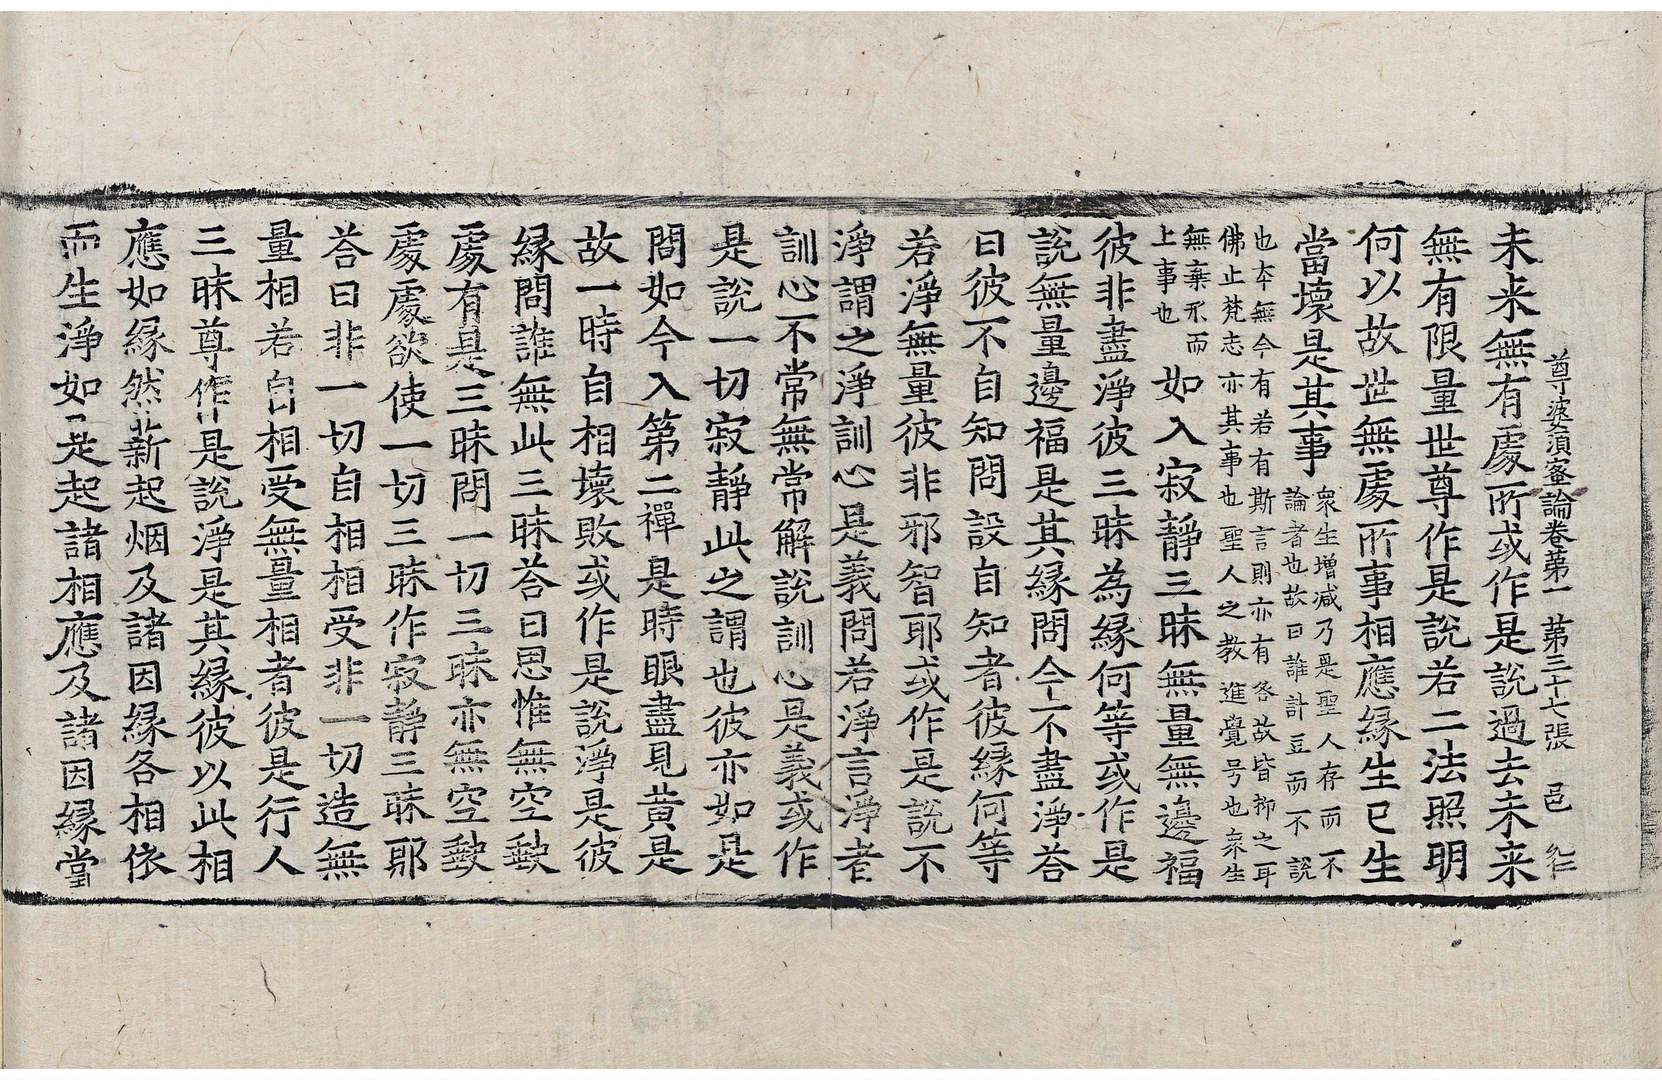 尊婆須蜜論卷第一　第三十七張　邑
未来無有處所或作是說過去未来
無有限量世尊作是說若二法照明
何以故世無處所事相應緣生已生
當壞是其事衆生增减乃是聖人存而不
論者也故曰誰計豆而不說
也本無今有若有斯言則亦有各故皆抑之耳
佛止梵志亦其事也聖人之教進覺号也衆生
無棄形而
上事也如入寂靜三昧無量無邊福
彼非盡淨彼三昧為緣何等或作是
說無量邊福是其緣問今不盡淨荅
曰彼不自知問設自知者彼緣何等
若淨無量彼非邪智耶或作是說不
淨謂之淨訓心是義問若淨言淨者
訓心不常無常解說訓心是義或作
是說一切寂靜此之謂也彼亦如是
問如今入第二禪是時眼盡見黄是
故一時自相壞敗或作是說淨是彼
緣問誰無此三昧荅曰思惟無空缺
處有是三昧問一切三昧亦無空缺
處處欲使一切三昧作寂靜三昧耶
荅曰非一切自相相受非一切造無
量相若自相受無量相者彼是行人
三昧尊作是說淨是其緣彼以此相
應如緣然薪起烟及諸因緣各相依
而生淨如是起諸相應及諸因緣當